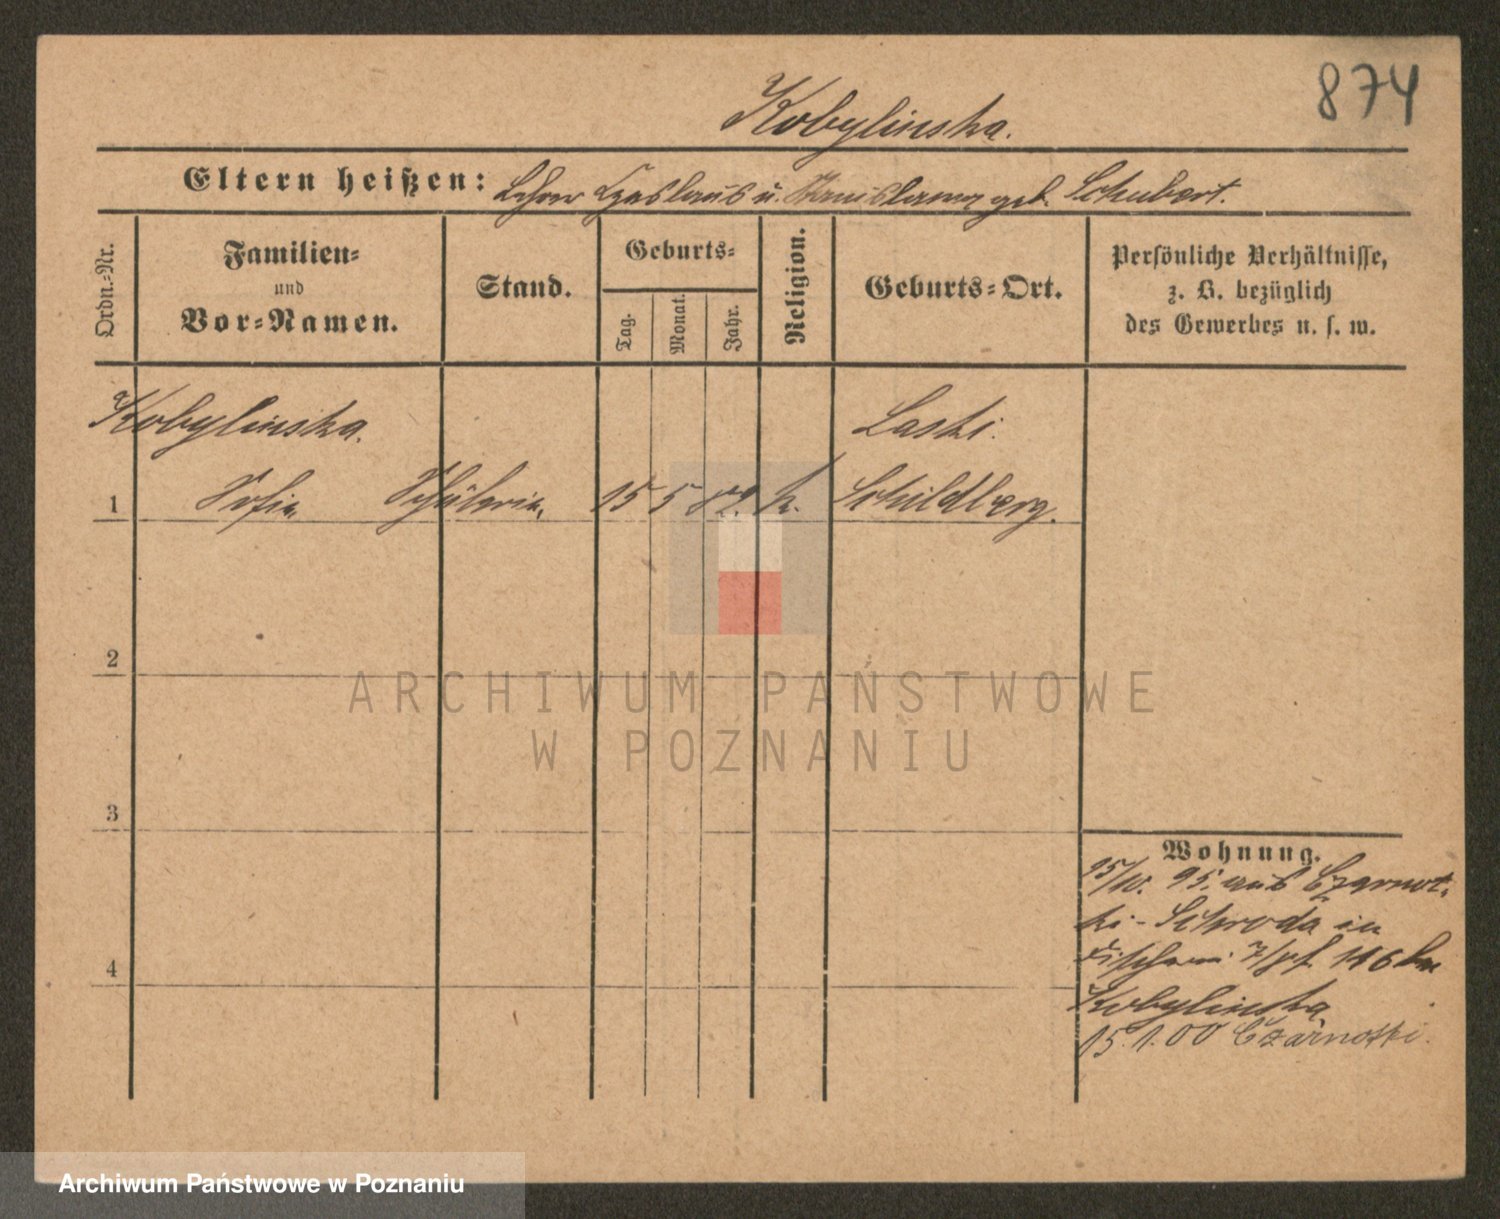 874
Kobylinska.
Eltern heißen: Lehrer Czeslaus u. Stanislawa geb. Schubert.
Ordn.-Nr.
Familien-
und
Vor-Namen.
Stand.
Geburts-
Tag.
Monat.
Jahr.
Religion.
Geburts-Ort.
Persönliche Verhältnisse,
z. B. bezüglich
des Gewerbes u. s. w.
Kobylinska. Laski.
1 Sofie Schülerin, 15 5 k. Schildberg.
2
ARCHIWUM PAŃSTWOWE
W POZNANIU
3
Wohnung.
15/10. 95. aus Czarnot-
ki - Schroda in
116 bei
4
Kobylinska
15.1.00 Czarnotki.
Archiwum Państwowe w Poznaniu